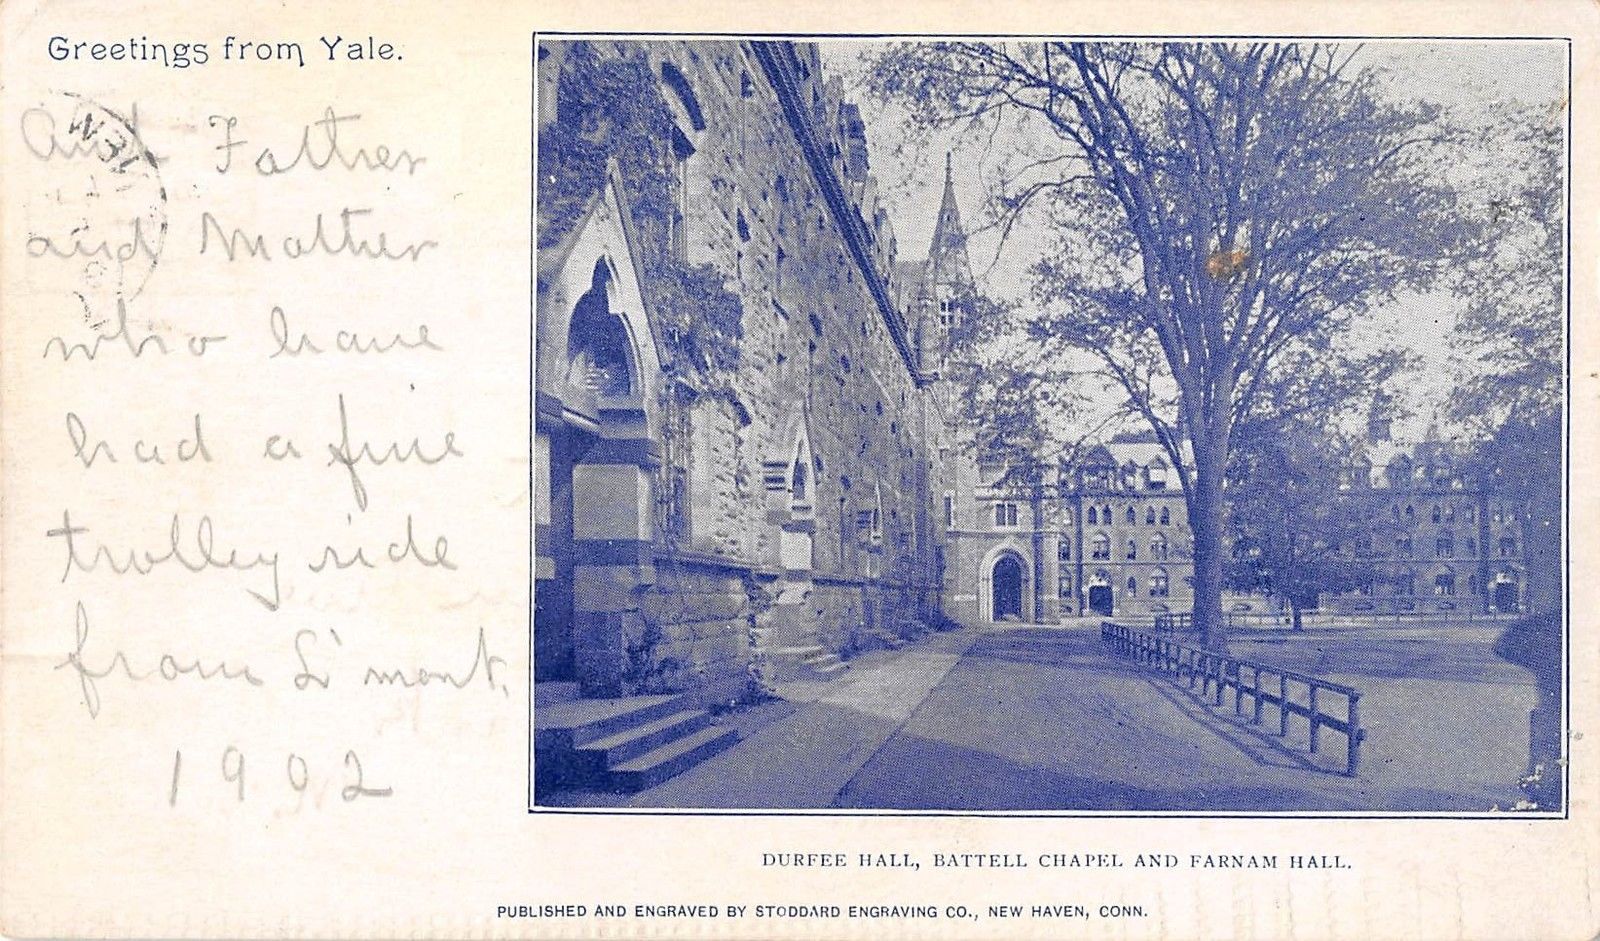 Greetings from Yale.
And Father
and Mother
who have
had a fine
trolley ride
from L'mont,
1902
DURFEE HALL, BATTELL CHAPEL AND FARNAM HALL.
PUBLISHED AND ENGRAVED BY STODDARD ENGRAVING CO., NEW HAVEN, CONN.